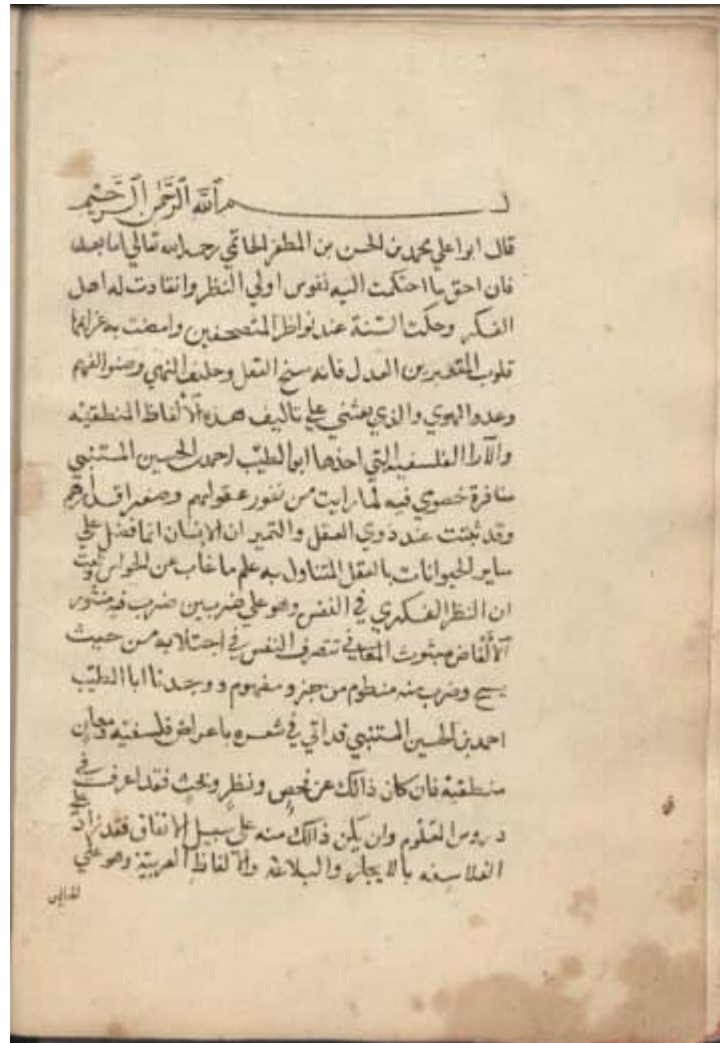 بسم الله الرحمن الرحيم
قال ابوا علي محمد بن الحسن بن المظفر الحاتمي رحمه الله تعالى اما بعد
فان احق ما احتكمت اليه نفوس اولي النظر وانقادت له اهل
الفكر وحكت السنة عند نواظر المتصحفين وامضت به عزايما
قلوب المتحيرين العدل فانه سنخ العقل وحليف النهي وصنو الفهم
وعدو الهوي والذي بعثني علي تاليف هذه الالفاظ المنطقيه
والآرا الفلسفيه التي اخذها ابو الطيب احمد بن الحسين المتنبي
منافرة خصومي فيه لما رايت من نفور عقولهم وصغر اقدارهم
وقد ثبتت عند ذوي العقل والتميز ان الانسان انما فضل علي
ساير الحيوانات بالعقل المتناول به علم ما غاب عن الحواس
ان النظر الفكري في النفس وهو علي ضربين ضرب فيه منثور
الألفاض مبثوث المعاني تتصرف النفس في اجتلابه من حيث
وضرب منه منظوم من جز ومفهوم ووجدنا ابا الطيب
احمد بن الحسين المتنبي قد اتي في شعره باعراض فلسفية ومعان
منطقية فان كان ذالك عن فحص ونظر وبحث فقد اعرف في
دروس العلوم وان يكن ذالك منه علي سبيل الاتفاق فقد زاد علي
الفلاسفه بالايجاز والبلاغة والالفاظ العربية وهو علي